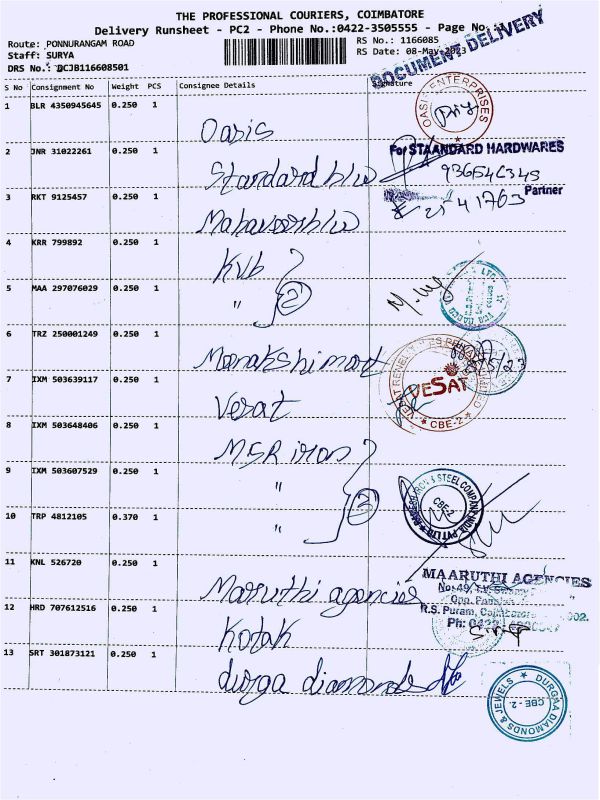 THE PROFESSIONAL COURIERS, COIMBATORE
Delivery Runsheet - PC2 - Phone No.:0422-3505555 - Page No.:1
Route: PONNURANGAM ROAD
Staff: SURYA
DRS No.: DCJB116608501
RS No.: 1166085
RS Date: 08-May-2023
DOCUMENT DELIVERY
S No Consignment No Weight PCS Consignee Details Signature
1 BLR 4350945645 0.250 1 Oasis
OASIS ENTERPRISES
2 JNR 31022261 0.250 1 Standard h/w
For STAANDARD HARDWARES
Partner
3 RKT 9125457 0.250 1 Mahaveer h/w
4 KRR 799892 0.250 1 KVB
5 MAA 297076029 0.250 1 " 2
6 TRZ 250001249 0.250 1 Meenakshi mart
7 IXM 503639117 0.250 1 Vesat
VESAT
CBE-2
8 IXM 503648406 0.250 1 MSR iron
9 IXM 503607529 0.250 1 "
10 TRP 4812105 0.370 1 " 3
& STEEL COMPANY INDIA PVT LTD
CBE-2
11 KNL 526720 0.250 1 Maruthi agencies
MAARUTHI AGENCIES
No:49, T.V. Swamy
Opp.
R.S. Puram, Coimbatore 002.
Ph: 0422
12 HRD 707612516 0.250 1 Kotak
13 SRT 301873121 0.250 1 durga diamonds
DURGAA DIAMONDS & JEWELS
CBE - 2